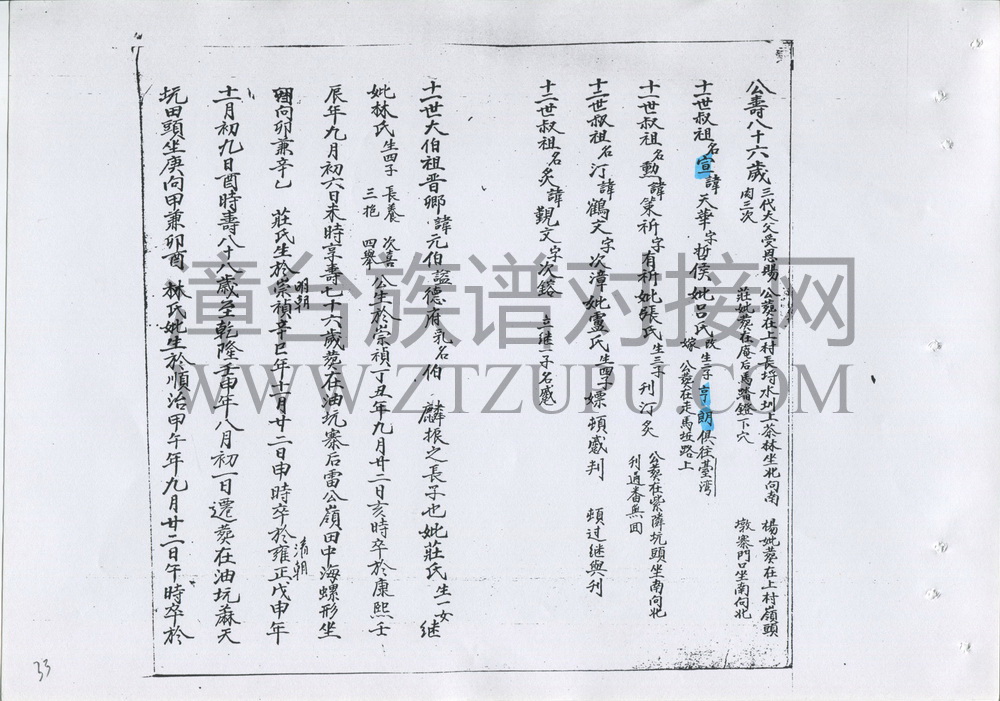 公壽八十六歲 三代大父受恩賜肉三次 公葬在上村長埒水圳上茶林坐北向南 莊妣葬在庵后馬踏鐙下穴 楊妣葬在上村嶺頭墩寨門口坐南向北
十一世叔祖名宣諱天華字哲侯妣呂氏改嫁生二子亨朗俱往臺灣 公葬在走馬坂路上
十一世叔祖名勳諱策祈字有祈妣張氏生三子刋汀炙 公葬在紫薇坑頭坐南向北 刋過番無回
十二世叔祖名汀諱鶴文字次漳妣盧氏生四子嫖頓感判 頓过継與刋
十二世叔祖名炙諱觀文字次鎔 立継一子名感
十一世大伯祖晋卿諱元伯諡德府乳名伯 麟振之長子也妣莊氏生一女継
妣林氏生四子長養次喜三抱四舉公生於崇禎丁丑年九月廿二日亥時卒於康熙壬
辰年九月初六日未時享壽七十六歲葬在油坑寨后雷公嶺田中海螺形坐
酉向卯兼辛乙 莊氏生於明朝崇禎辛巳年十一月廿二日申時卒於清朝雍正戊申年
十一月初九日酉時壽八十八歲至乾隆壬申年八月初一日遷葬在油坑蔴天
坑田頭坐庚向甲兼卯酉 林氏妣生於順治甲午年九月廿二日午時卒於
章台族谱对接网
WWW.ZTZUPU.COM
33